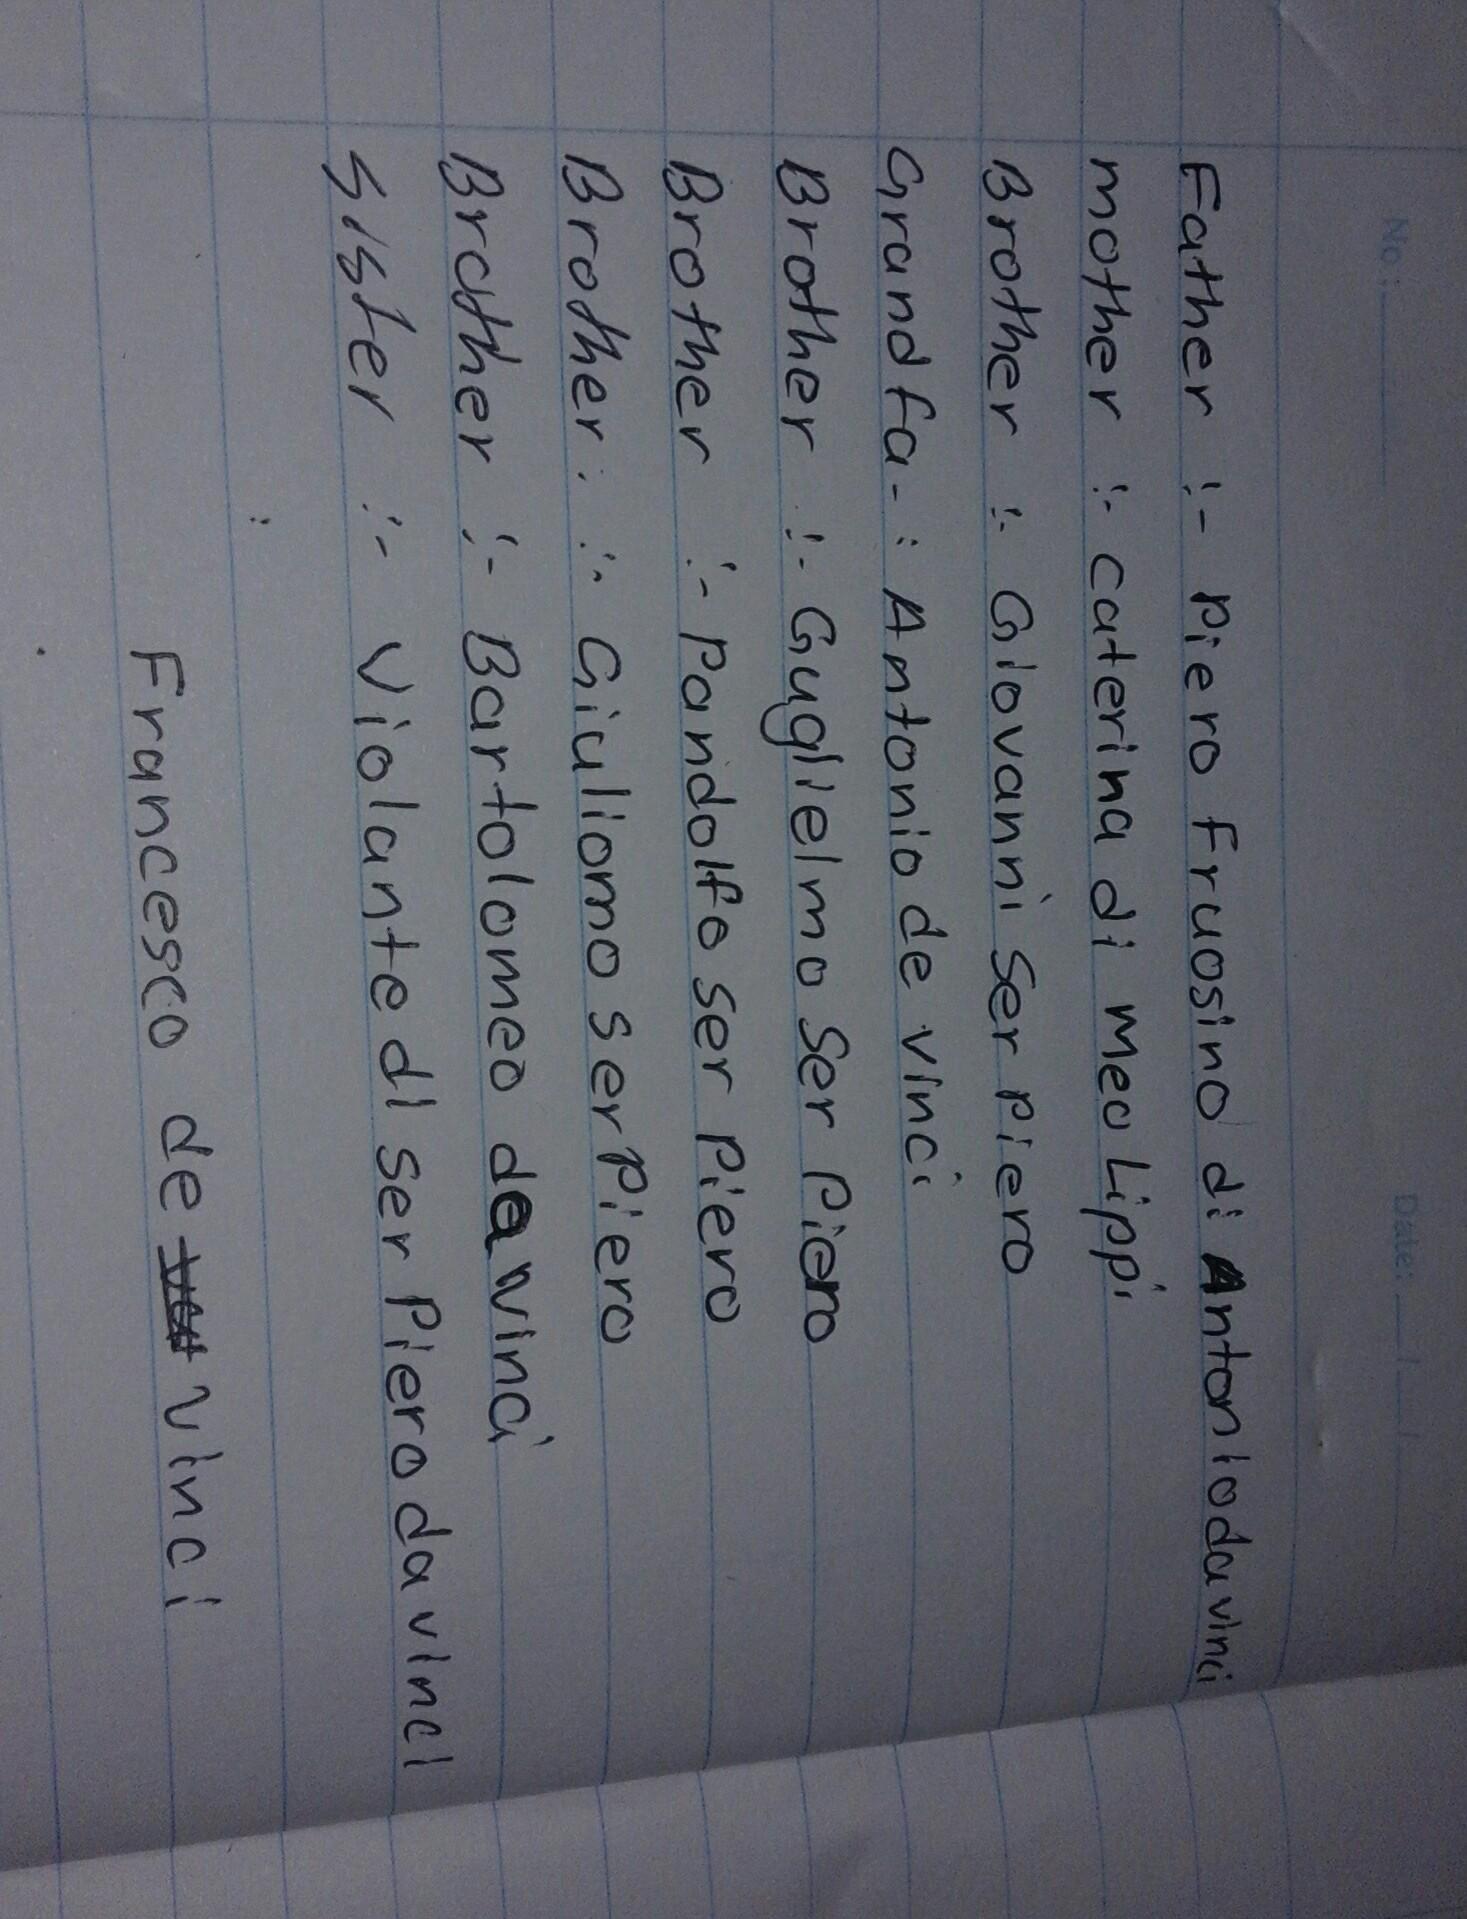 No.:
Date:
Father :- Piero Fruosino di Antonio da vinci
mother :- caterina di meo Lippi
Brother :- Giovanni Ser Piero
Grand fa- : Antonio de vinci
Brother :- Guglielmo Ser Piero
Brother :- Pandolfo ser Piero
Brother : :- Giuliomo ser Piero
Brother :- Bartolomeo da vinci
Sister :- Violante di ser Piero da vinci
Francesco de vinci